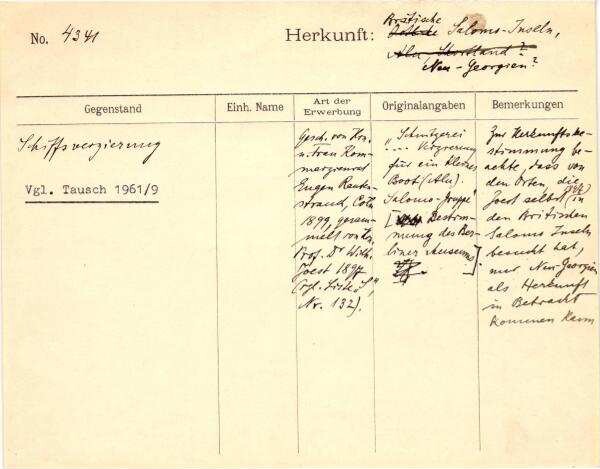 No. 4341
Herkunft:
Britische
Salomo-Inseln,
Alu Shortland?
Neu-Georgien?
Gegenstand
Einh. Name
Art der
Erwerbung
Originalangaben
Bemerkungen
Schiffsverzierung
Vgl. Tausch 1961/9
Gesch. von Hrn.
u. Frau Kom-
merzienrat
Eugen Rauten-
strauch, Cöln
1899, gesam-
melt von Hrn.
Prof. Dr Wilh.
Joest 1897
(Vgl. Liste „S“,
Nr. 132).
„Schnitzerei
... Verzierung
für ein kleines
Boot (Alu).
Salomo-Gruppe“
[Bestim-
mung des Ber-
liner Museums]
Zur Herkunftsbe-
stimmung be-
achte, dass von
den Orten, die
Joest selbst (in
den Britischen
Salomo Inseln
besucht hat,
nur Neu Georgien
als Herkunft
in Betracht
kommen kann